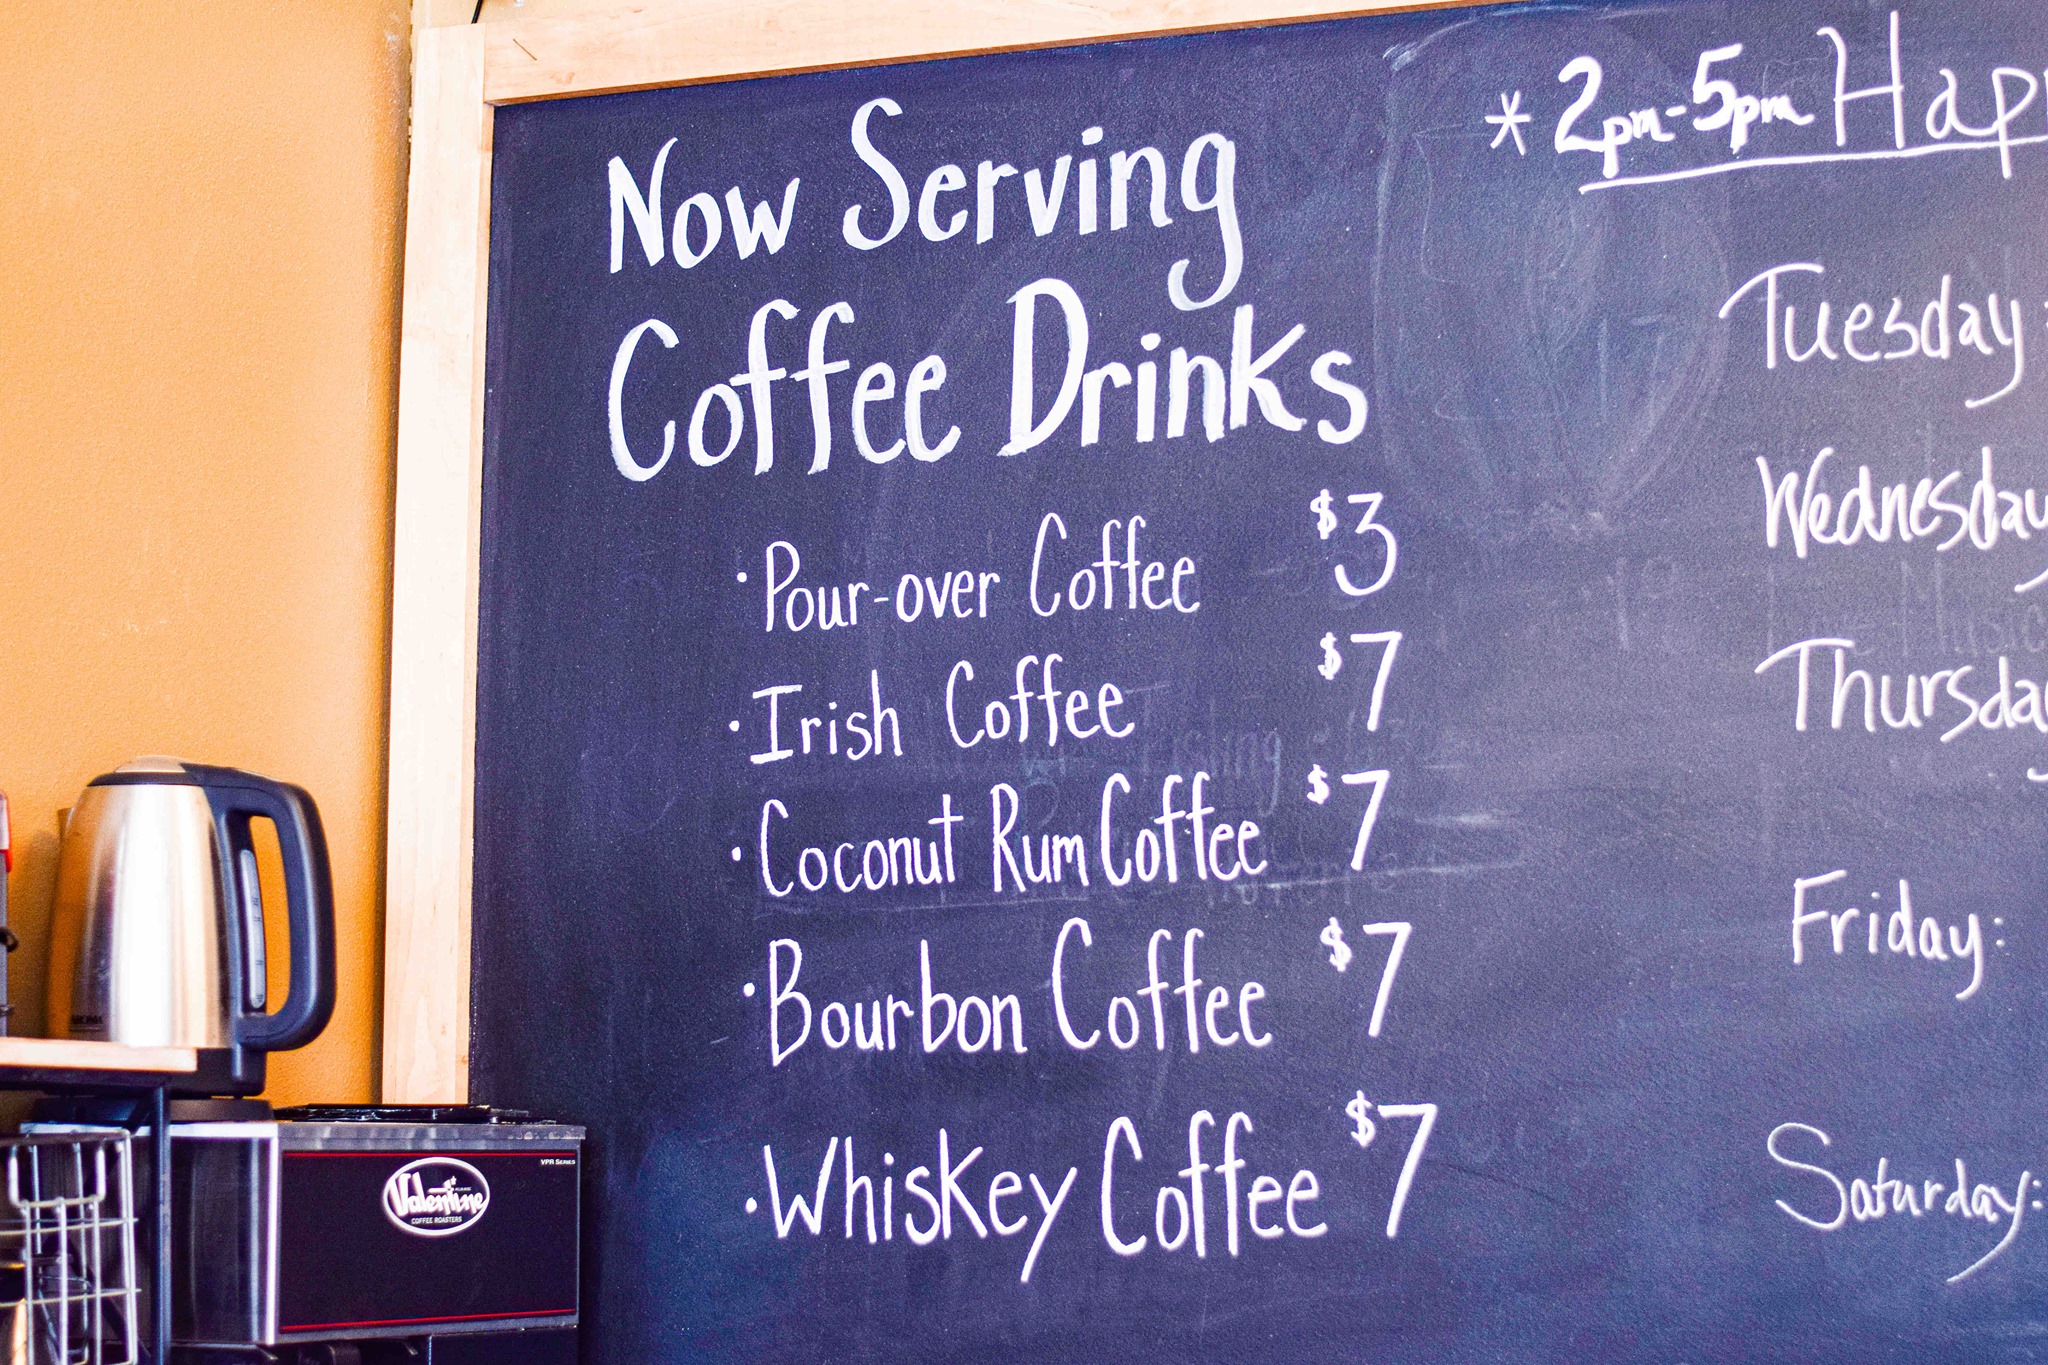 Now Serving
Coffee Drinks
· Pour-over Coffee $3
· Irish Coffee $7
· Coconut Rum Coffee $7
· Bourbon Coffee $7
· Whiskey Coffee $7
* 2pm-5pm Happ
Tuesday:
Wednesday
Thursday
Friday:
Saturday:
AROMA
VPR SERIES
Valentine
COFFEE ROASTERS